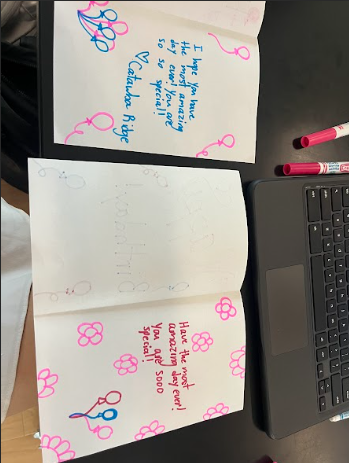 I hope you have
the most amazing
day ever! You are
so so special!
♡Catawba Ridge
Have the most
amazing day ever!
You are sooo
special!